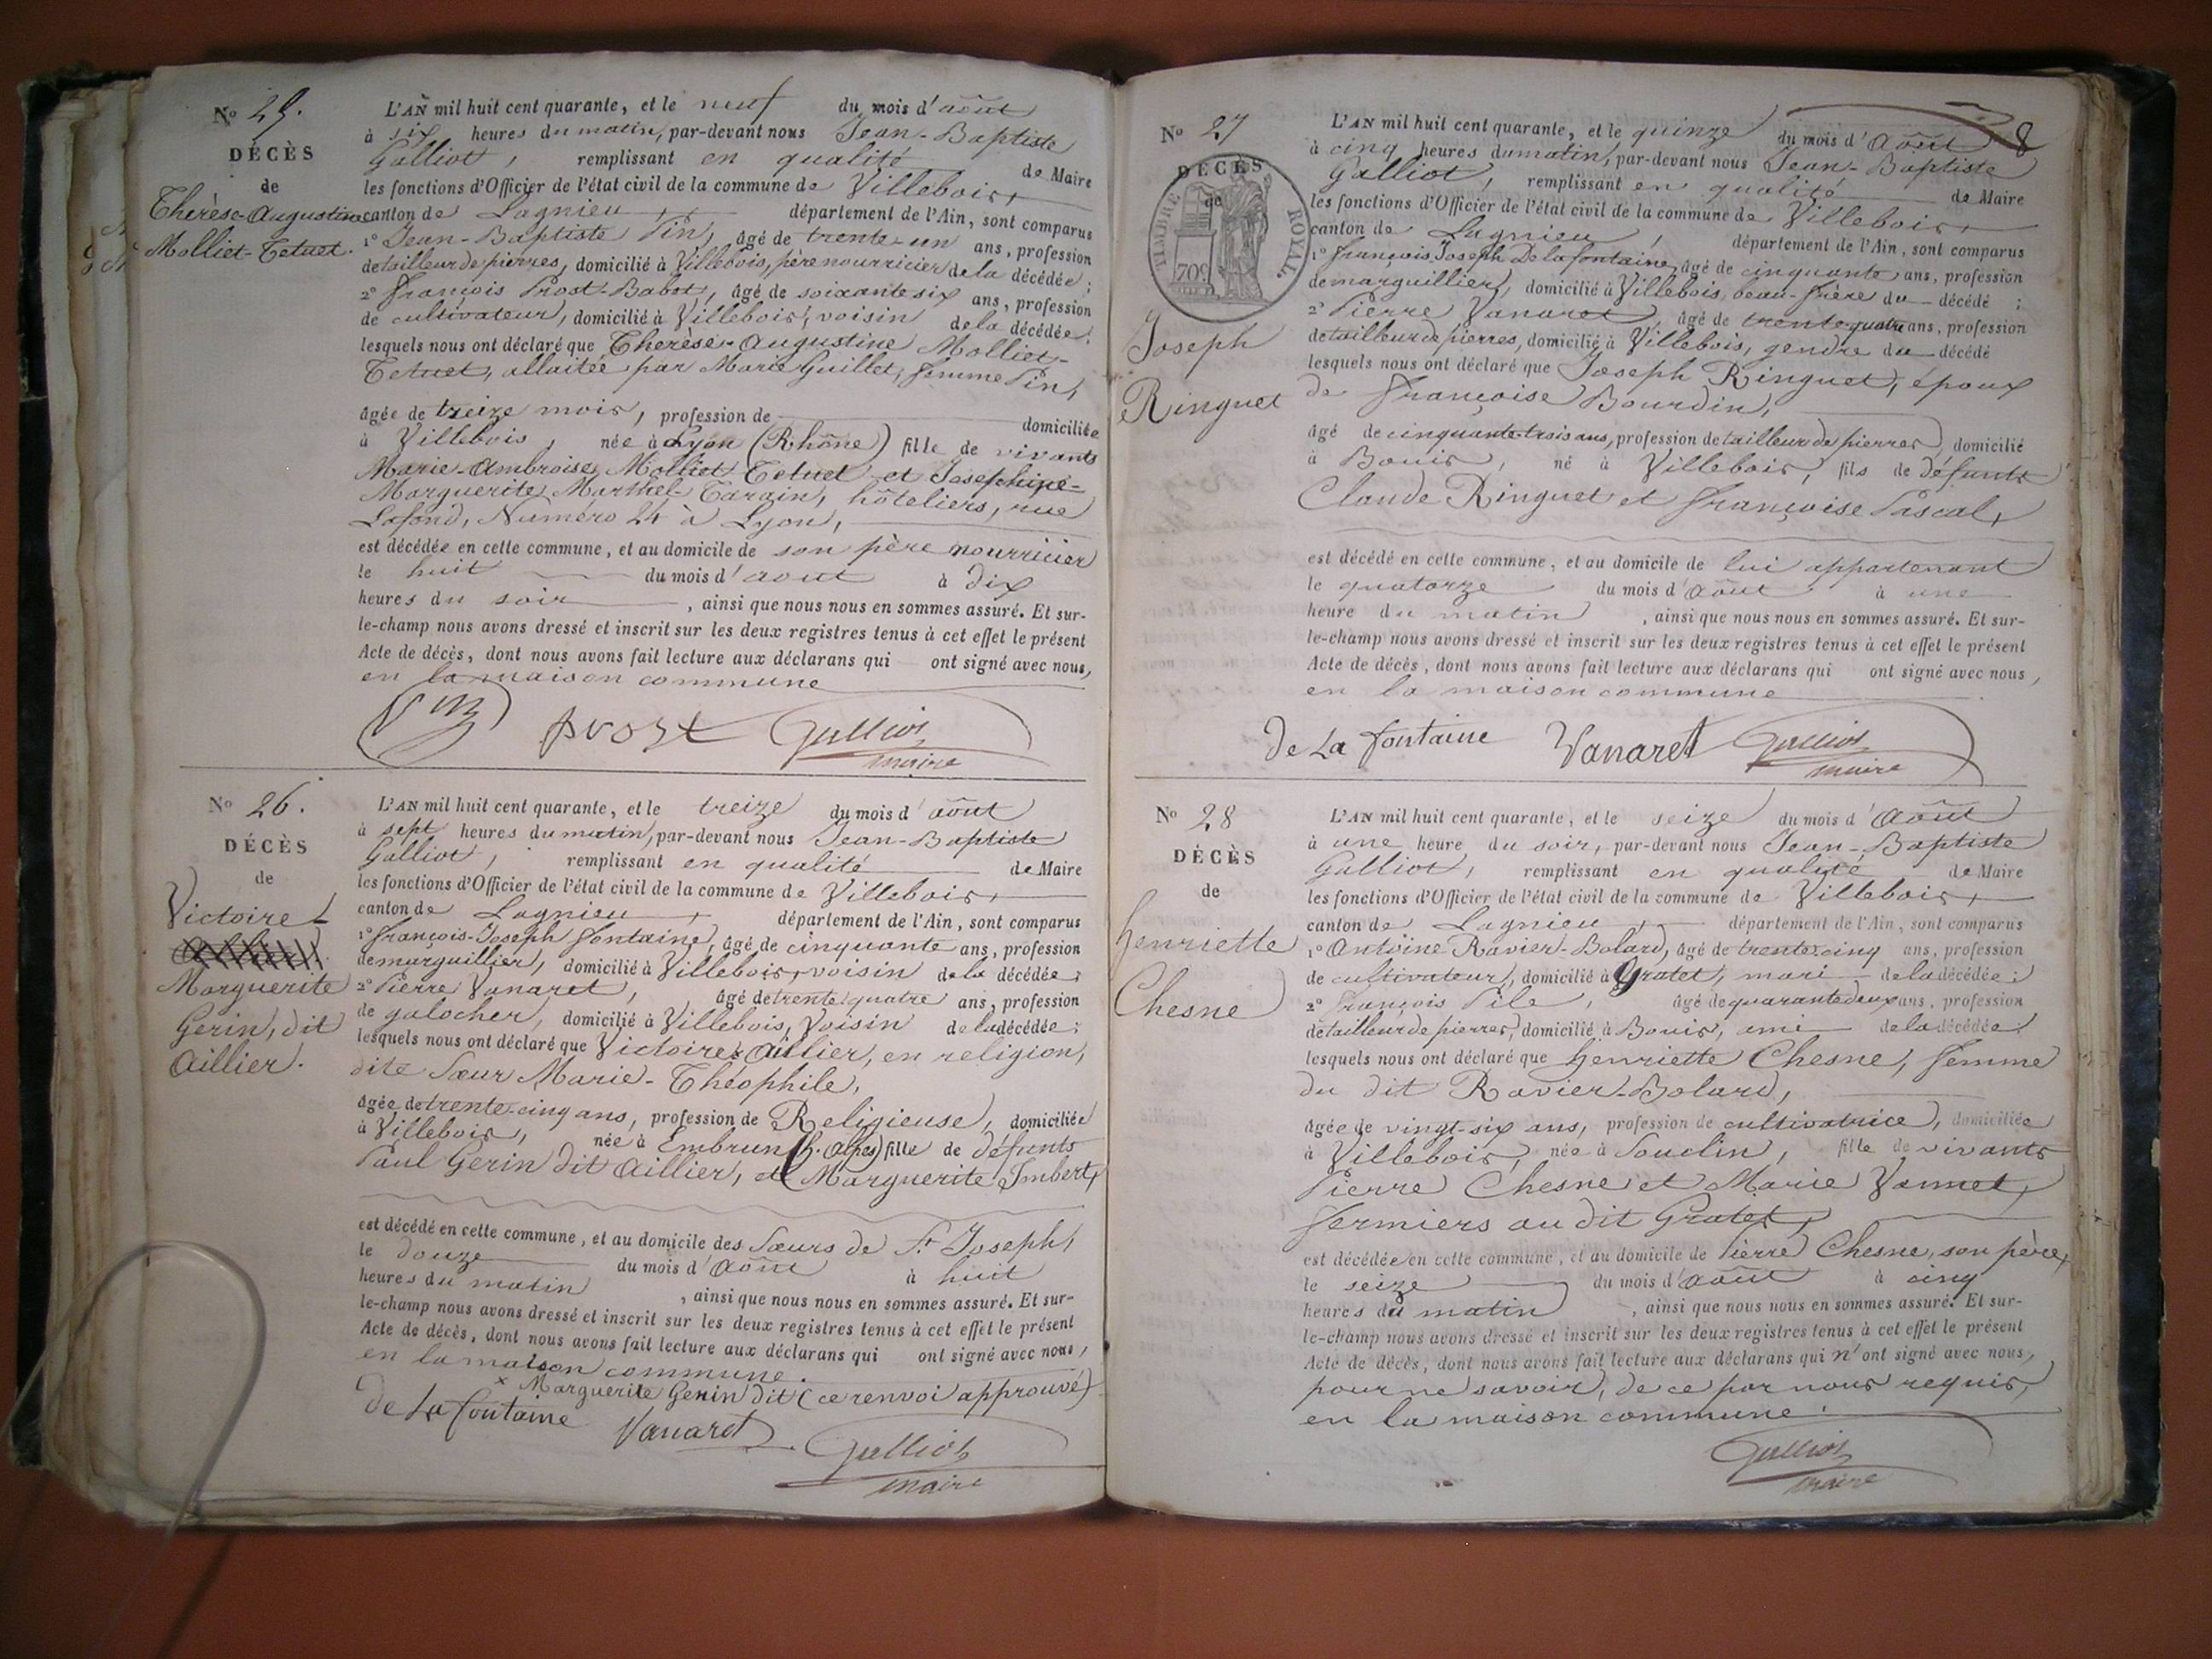 No 25.
DÉCÈS
de
Therèse-Augustine
Molliet-Tetuet.
L'AN mil huit cent quarante, et le neuf du mois d'août
à six heures du matin, par-devant nous Jean-Baptiste
Galliot, remplissant en qualité de Maire
les fonctions d'Officier de l'état civil de la commune de Villebois,
canton de Lagnieu, département de l'Ain, sont comparus
1o Jean-Baptiste Pin, âgé de trente-un ans, profession
de tailleur de pierres, domicilié à Villebois, père nourricier de la décédée;
2o François Prost-Babot, âgé de soixante six ans, profession
de cultivateur, domicilié à Villebois, voisin de la décédée;
lesquels nous ont déclaré que Therèse-Augustine Molliet-
Tetuet, allaitée par Marie Guillet, femme Pin,
âgée de treize mois, profession de domiciliée
à Villebois, née à Lyon (Rhône) fille de vivants
Marie-Ambroise Molliet Tetuet et Josephine-
Marguerite Marthel-Targin, hôteliers, rue
Lafond, Numéro 24 à Lyon,
est décédée en cette commune, et au domicile de son père nourricier
le huit du mois d'aout à dix
heures du soir, ainsi que nous nous en sommes assuré. Et sur-
le-champ nous avons dressé et inscrit sur les deux registres tenus à cet effet le présent
Acte de décès, dont nous avons fait lecture aux déclarans qui ont signé avec nous,
en la maison commune
prost Galliot
maire
No 26.
DÉCÈS
de
Victoire
Marguerite
Gerin, dit
Aillier.
L'AN mil huit cent quarante, et le treize du mois d'août
à sept heures du matin, par-devant nous Jean-Baptiste
Galliot, remplissant en qualité de Maire
les fonctions d'Officier de l'état civil de la commune de Villebois,
canton de Lagnieu, département de l'Ain, sont comparus
1o François-Joseph Fontaine, âgé de cinquante ans, profession
de marguillier, domicilié à Villebois, voisin de la décédée;
2o Pierre Vanaret, âgé de trente quatre ans, profession
de galocher, domicilié à Villebois, Voisin de la décédée;
lesquels nous ont déclaré que Victoire x Aillier, en religion,
dite Sœur Marie-Théophile,
âgée de trente-cinq ans, profession de Religieuse, domiciliée
à Villebois, née à Embrun (h. Alpes) fille de défunts
Paul Gerin dit Aillier, et Marguerite Imbert,
est décédé en cette commune, et au domicile des Sœurs de St Joseph,
le douze du mois d'Août à huit
heures du matin, ainsi que nous nous en sommes assuré. Et sur-
le-champ nous avons dressé et inscrit sur les deux registres tenus à cet effet le présent
Acte de décès, dont nous avons fait lecture aux déclarans qui ont signé avec nous,
en la maison commune.
x Marguerite Gerin dit (ce renvoi approuvé)
de La fontaine Vanaret Galliot
maire
8
No 27
DÉCÈS
de
TIMBRE ROYAL
709
Joseph
Ringuet
L'AN mil huit cent quarante, et le quinze du mois d'Août
à cinq heures du matin, par-devant nous Jean-Baptiste
Galliot, remplissant en qualité de Maire
les fonctions d'Officier de l'état civil de la commune de Villebois,
canton de Lagnieu, département de l'Ain, sont comparus
1o François Joseph De la fontaine, âgé de cinquante ans, profession
de marguillier, domicilié à Villebois, beau-frère du décédé;
2o Pierre Vanaret âgé de trente quatre ans, profession
de tailleur de pierres, domicilié à Villebois, gendre du décédé
lesquels nous ont déclaré que Joseph Ringuet, époux
de Françoise Bourdin,
âgé de cinquante-trois ans, profession de tailleur de pierres, domicilié
à Bouis, né à Villebois, fils de Défunts
Claude Ringuet et Françoise Pascal,
est décédé en cette commune, et au domicile de lui appartenant
le quatorze du mois d'Août à une
heure du matin, ainsi que nous nous en sommes assuré. Et sur-
le-champ nous avons dressé et inscrit sur les deux registres tenus à cet effet le présent
Acte de décès, dont nous avons fait lecture aux déclarans qui ont signé avec nous,
en la maison commune
de La fontaine Vanaret Galliot
maire
No 28
DÉCÈS
de
henriette
Chesne
L'AN mil huit cent quarante, et le seize du mois d'Août
à une heure du soir, par-devant nous Jean-Baptiste
Galliot, remplissant en qualité de Maire
les fonctions d'Officier de l'état civil de la commune de Villebois,
canton de Lagnieu, département de l'Ain, sont comparus
1o Antoine Ravier-Bolard, âgé de trente-cinq ans, profession
de cultivateur, domicilié à Gratet, mari de la décédée;
2o François Pile, âgé de quarante deux ans, profession
de tailleur de pierres, domicilié à Bouis, ami de la décédée;
lesquels nous ont déclaré que henriette Chesne, femme
du dit Ravier-Bolard,
âgée de vingt-six ans, profession de cultivatrice, domiciliée
à Villebois, née à Souclin, fille de vivants
Pierre Chesne et Marie Vannet,
fermiers au dit Gratet,
est décédée en cette commune, et au domicile de Pierre Chesne, son père,
le seize du mois d'août à cinq
heures du matin, ainsi que nous nous en sommes assuré. Et sur-
le-champ nous avons dressé et inscrit sur les deux registres tenus à cet effet le présent
Acte de décès, dont nous avons fait lecture aux déclarans qui n'ont signé avec nous,
pour ne savoir, de ce par nous requis,
en la maison commune.
Galliot
maire